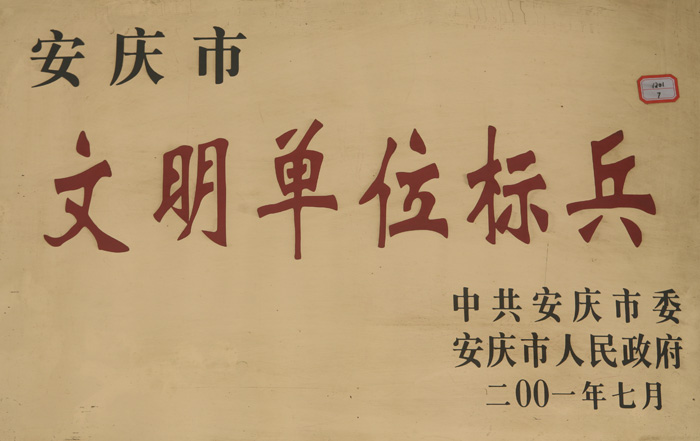 安庆市
文明单位标兵
中共安庆市委
安庆市人民政府
二00一年七月